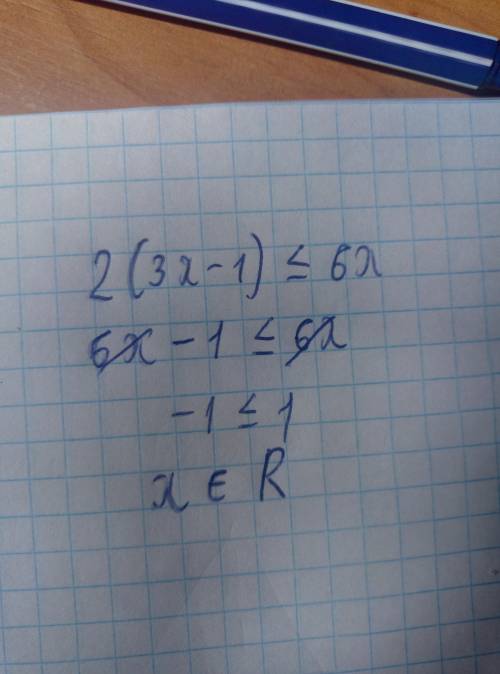 2(3x-1) ≤ 6x
6x - 1 ≤ 6x
-1 ≤ 1
x ∈ R